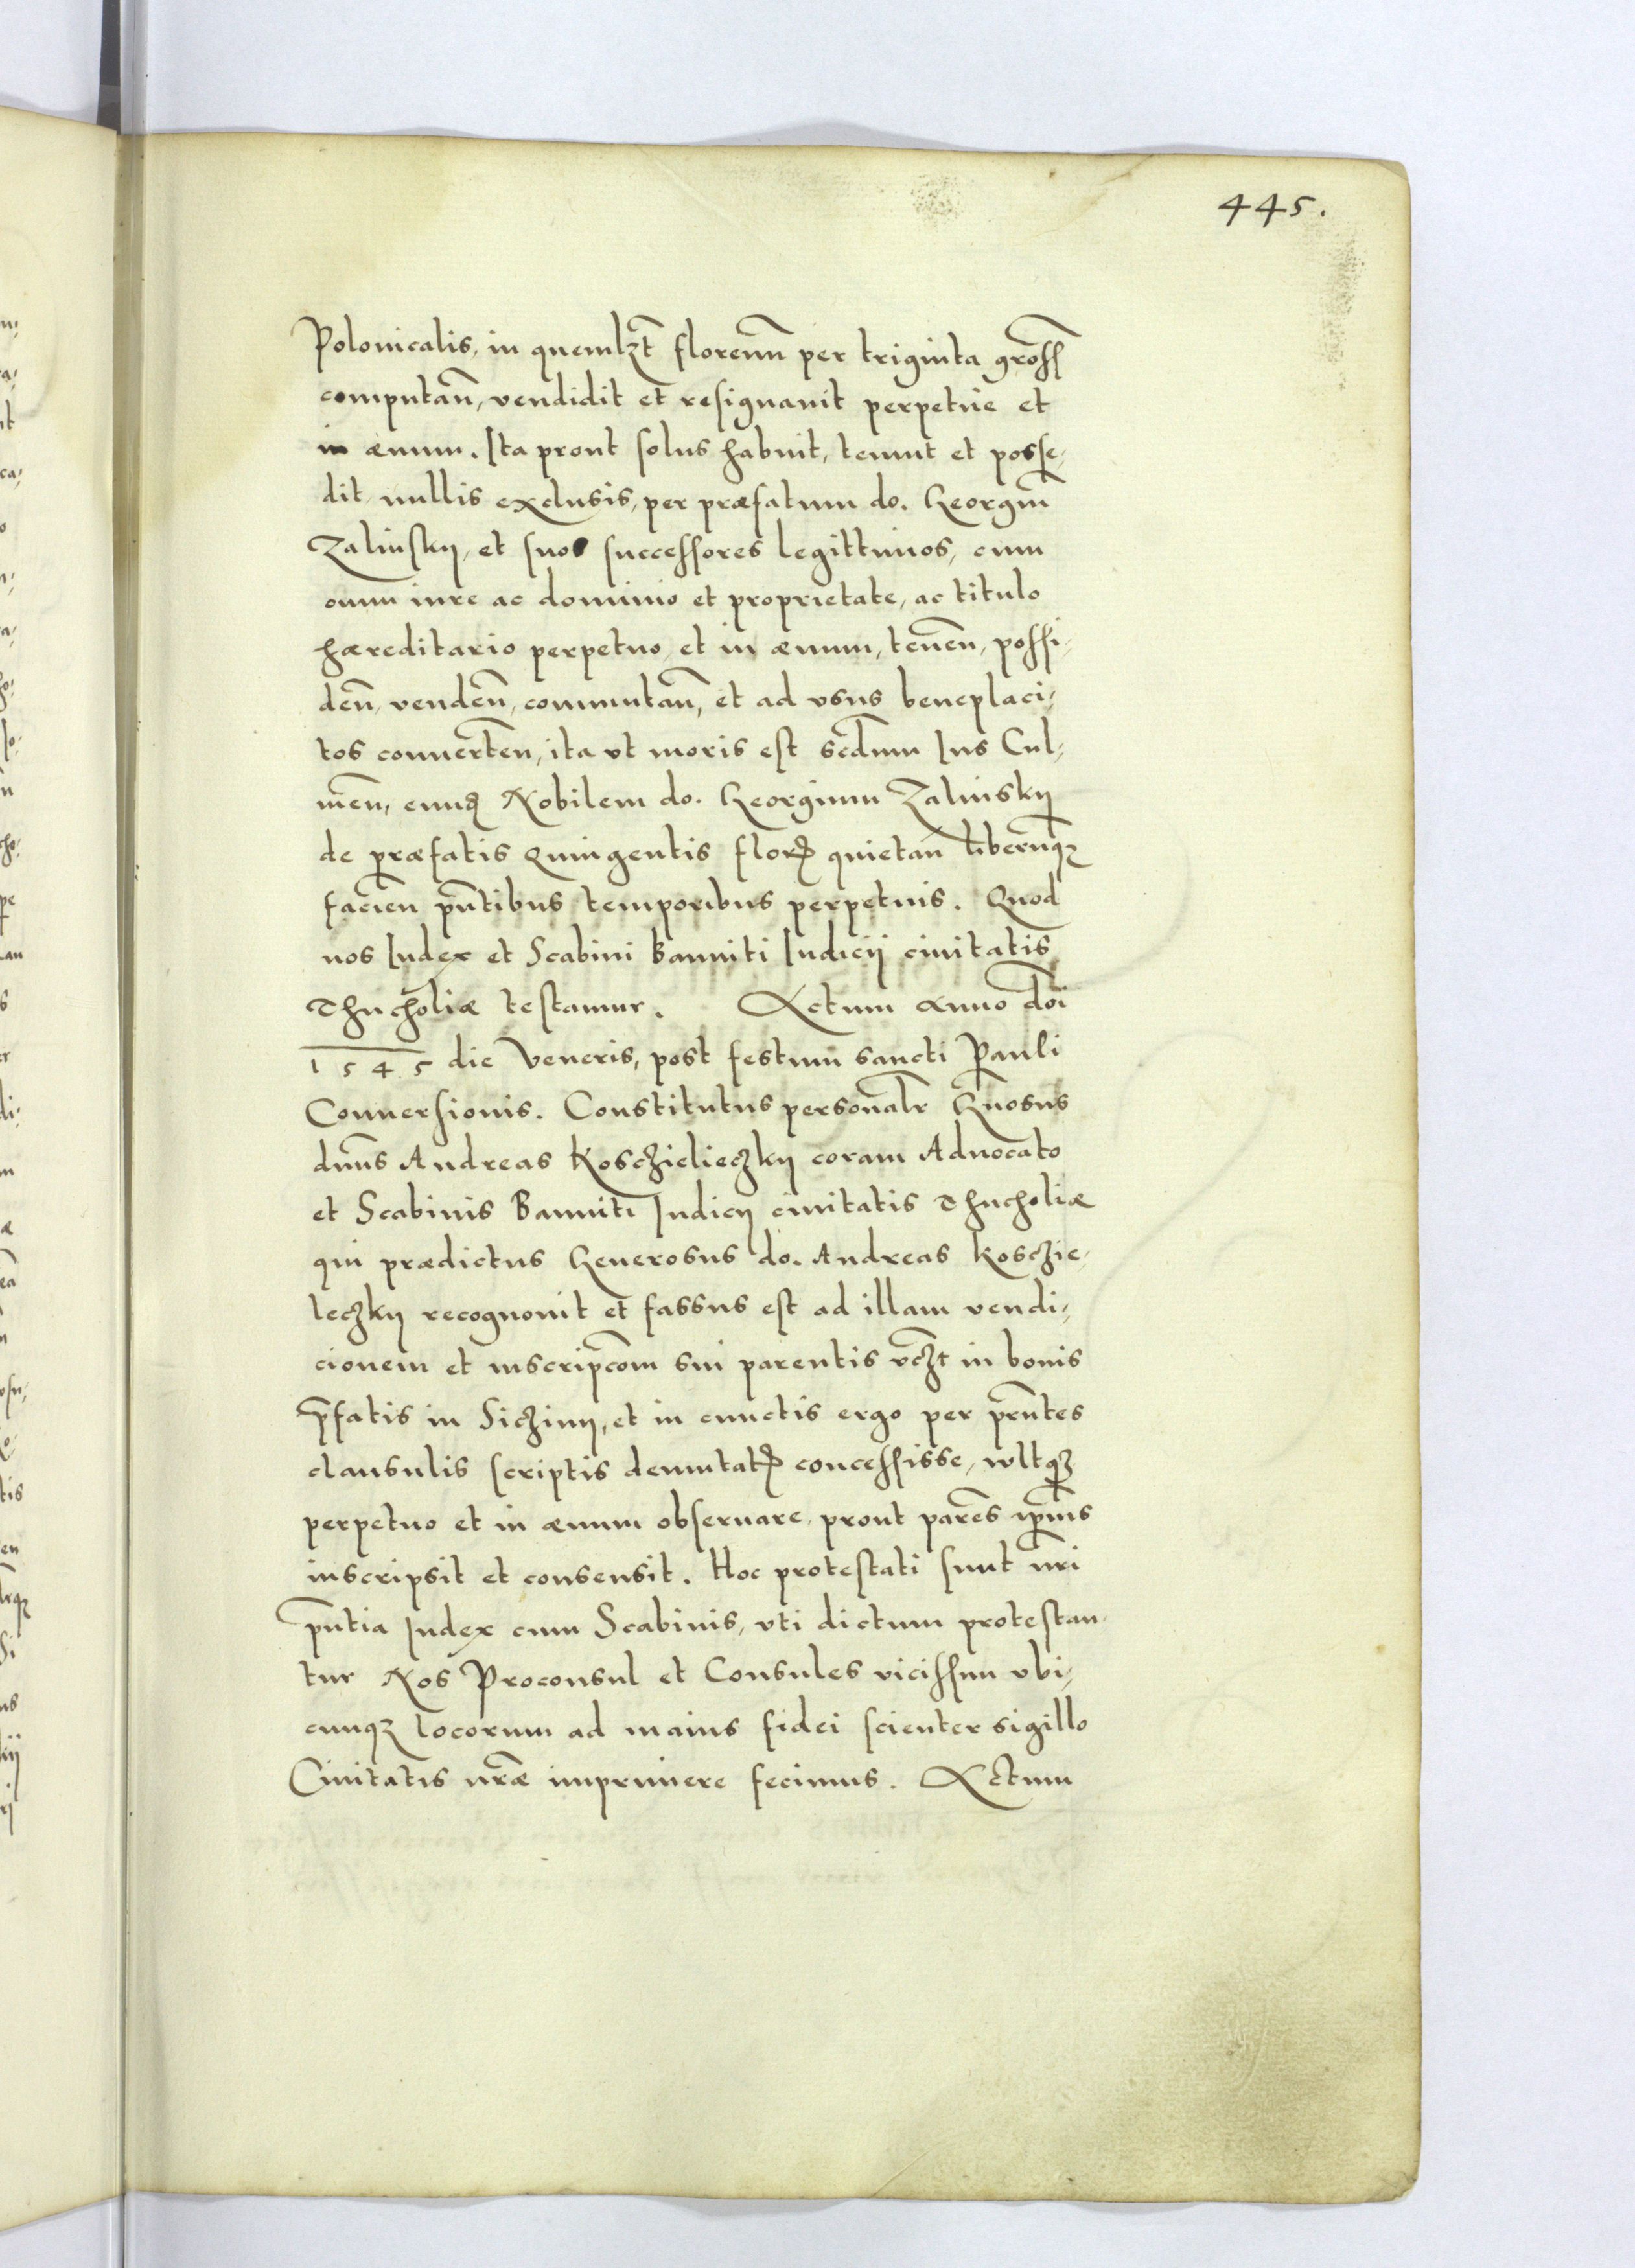 445.
Polonicalis, in quemlzt florenũ per triginta grossſ
computañ, vendidit et resignauit perpetue et
in æuum. Ita prout solus habuit, tenuit et posse,
dit nullis exclusis, per præfatum do. Georgiũ
Zalinskij, et suos successores legittimos, cum
omni iure ac dominio et proprietate, ac titulo
hæreditario perpetuo et in æuum, teneñ, possi,
deñ, vendeñ, commutañ, et ad vsus beneplaci,
tos conuerteñ, ita vt moris est secdum Ius Cul,
meñ, eundẽ Nobilem do. Georgium Zalinskij
de præfatis Quingentis florẽ quietañ liberũqȝ
facieñ pñtibus temporibus perpetuis. Quod
nos Iudex et Scabini Banniti Iudicij ciuitatis
Thucholiæ testamur. Actum Anno dñi
1545 die Veneris, post festum sancti Pauli
Conuersionis. Constitutus personalr Gñosus
dñns Andreas Kosczielieczkij coram Aduocato
et Scabinis Banniti Iudicij ciuitatis Thucholiæ
qui prædictus Generosus do. Andreas Kosczie,
leczkij recognouit et fassus est ad illam vendi,
cionem et inscripcõm sui parentis vczt in bonis
p̃fatis in Siczinij, et in cunctis ergo per prñtes
clausulis scriptis demutatẽ concessisse, vultqȝ
perpetuo et in æuum obseruare, prout parẽs ip̃ius
inscripsit et consensit. Hoc protestati sunt nr̃i
pñtia Iudex cum Scabinis, vti dictum protestan,
tur Nos Proconsul et Consules vicissim vbi,
cunqȝ locorum ad maius fidei scienter sigillo
Ciuitatis nr̃æ imprimere fecimus. Actum